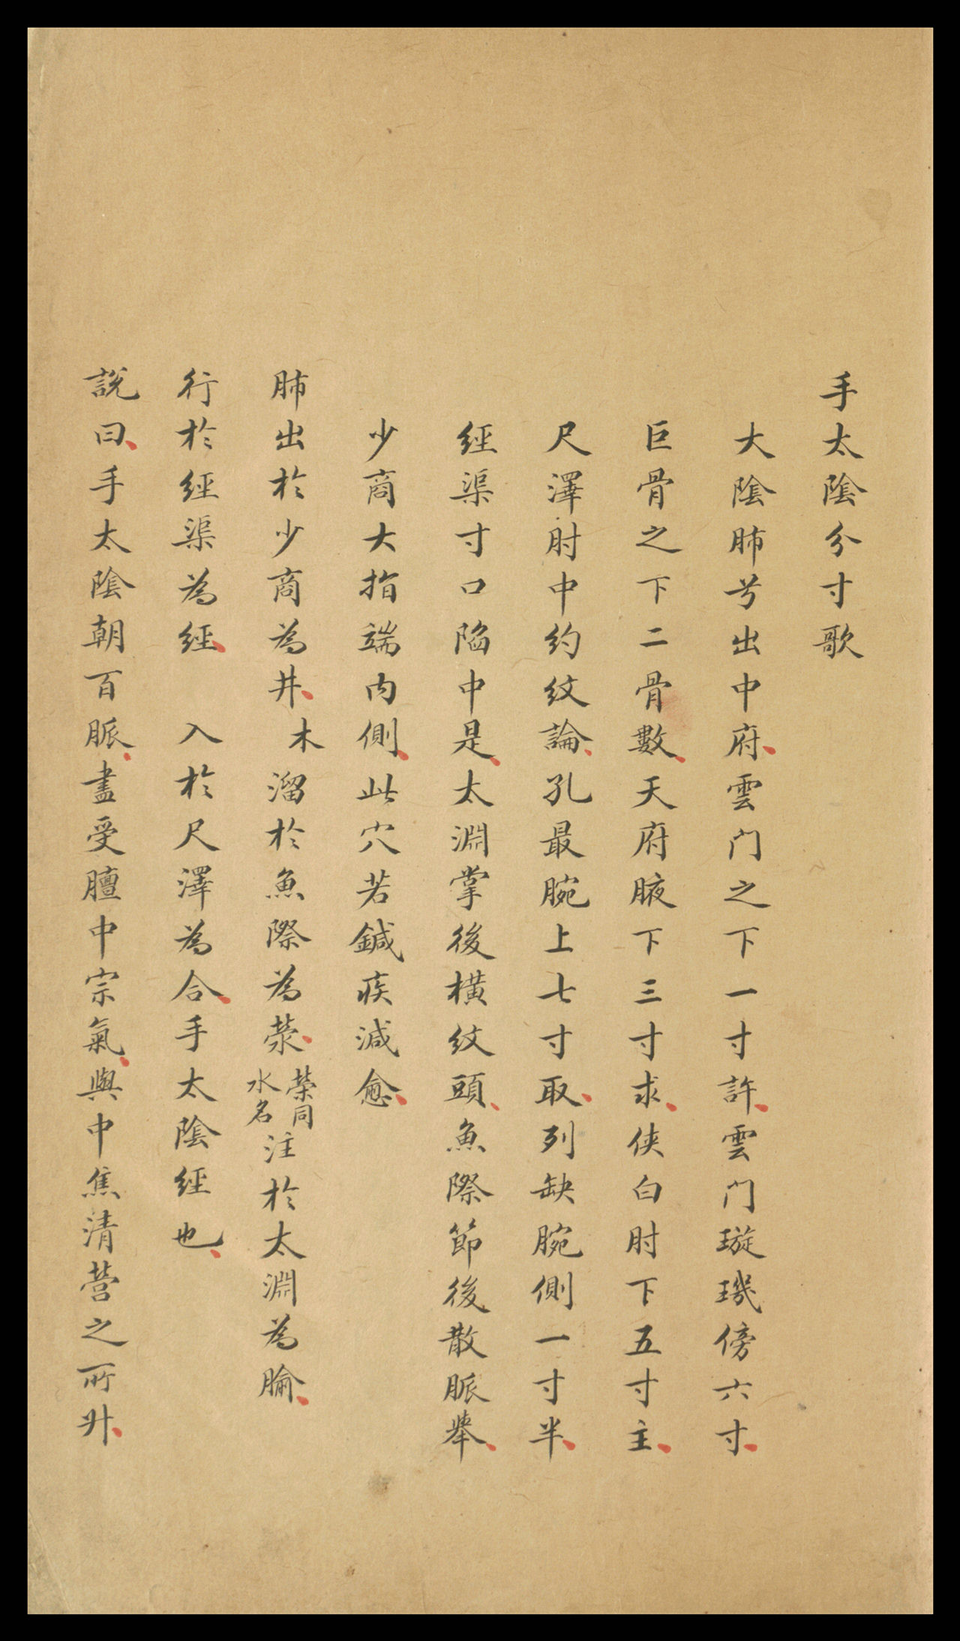 手太陰分寸歌
大陰肺兮出中府雲门之下一寸許雲门璇璣傍六寸
巨骨之下二骨數天府腋下三寸求侠白肘下五寸主
尺澤肘中約紋論孔最腕上七寸取列缺腕側一寸半
經渠寸口陷中是太淵掌後橫紋頭魚際節後散脈舉
少商大指端内側此穴若鍼疾減愈
肺出於少商為井木溜於魚際為荥滎同水名注於太淵為腧
行於經渠為經 入於尺澤為合手太陰經也
説曰手太陰朝百脈盡受膻中宗氣與中焦清营之所升